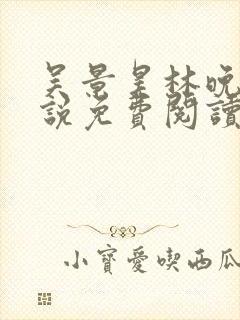 吴景皇林晚
說免費閱讀
小寶愛喫西瓜